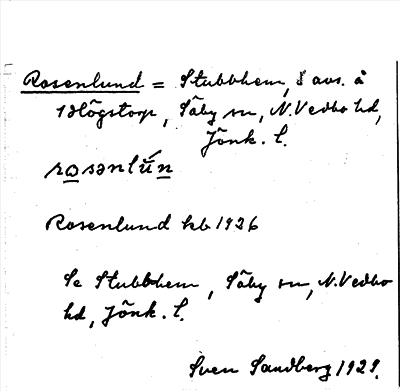 Rosenlund = Stubbhem, S avs. å
1 Högstorp, Säby sn, N. Vedbo hd,
Jönk. l.
rosənlún
Rosenlund kb 1926
Se Stubbhem, Säby sn, N. Vedbo
hd, Jönk. l.
Sven Sandberg 1929.